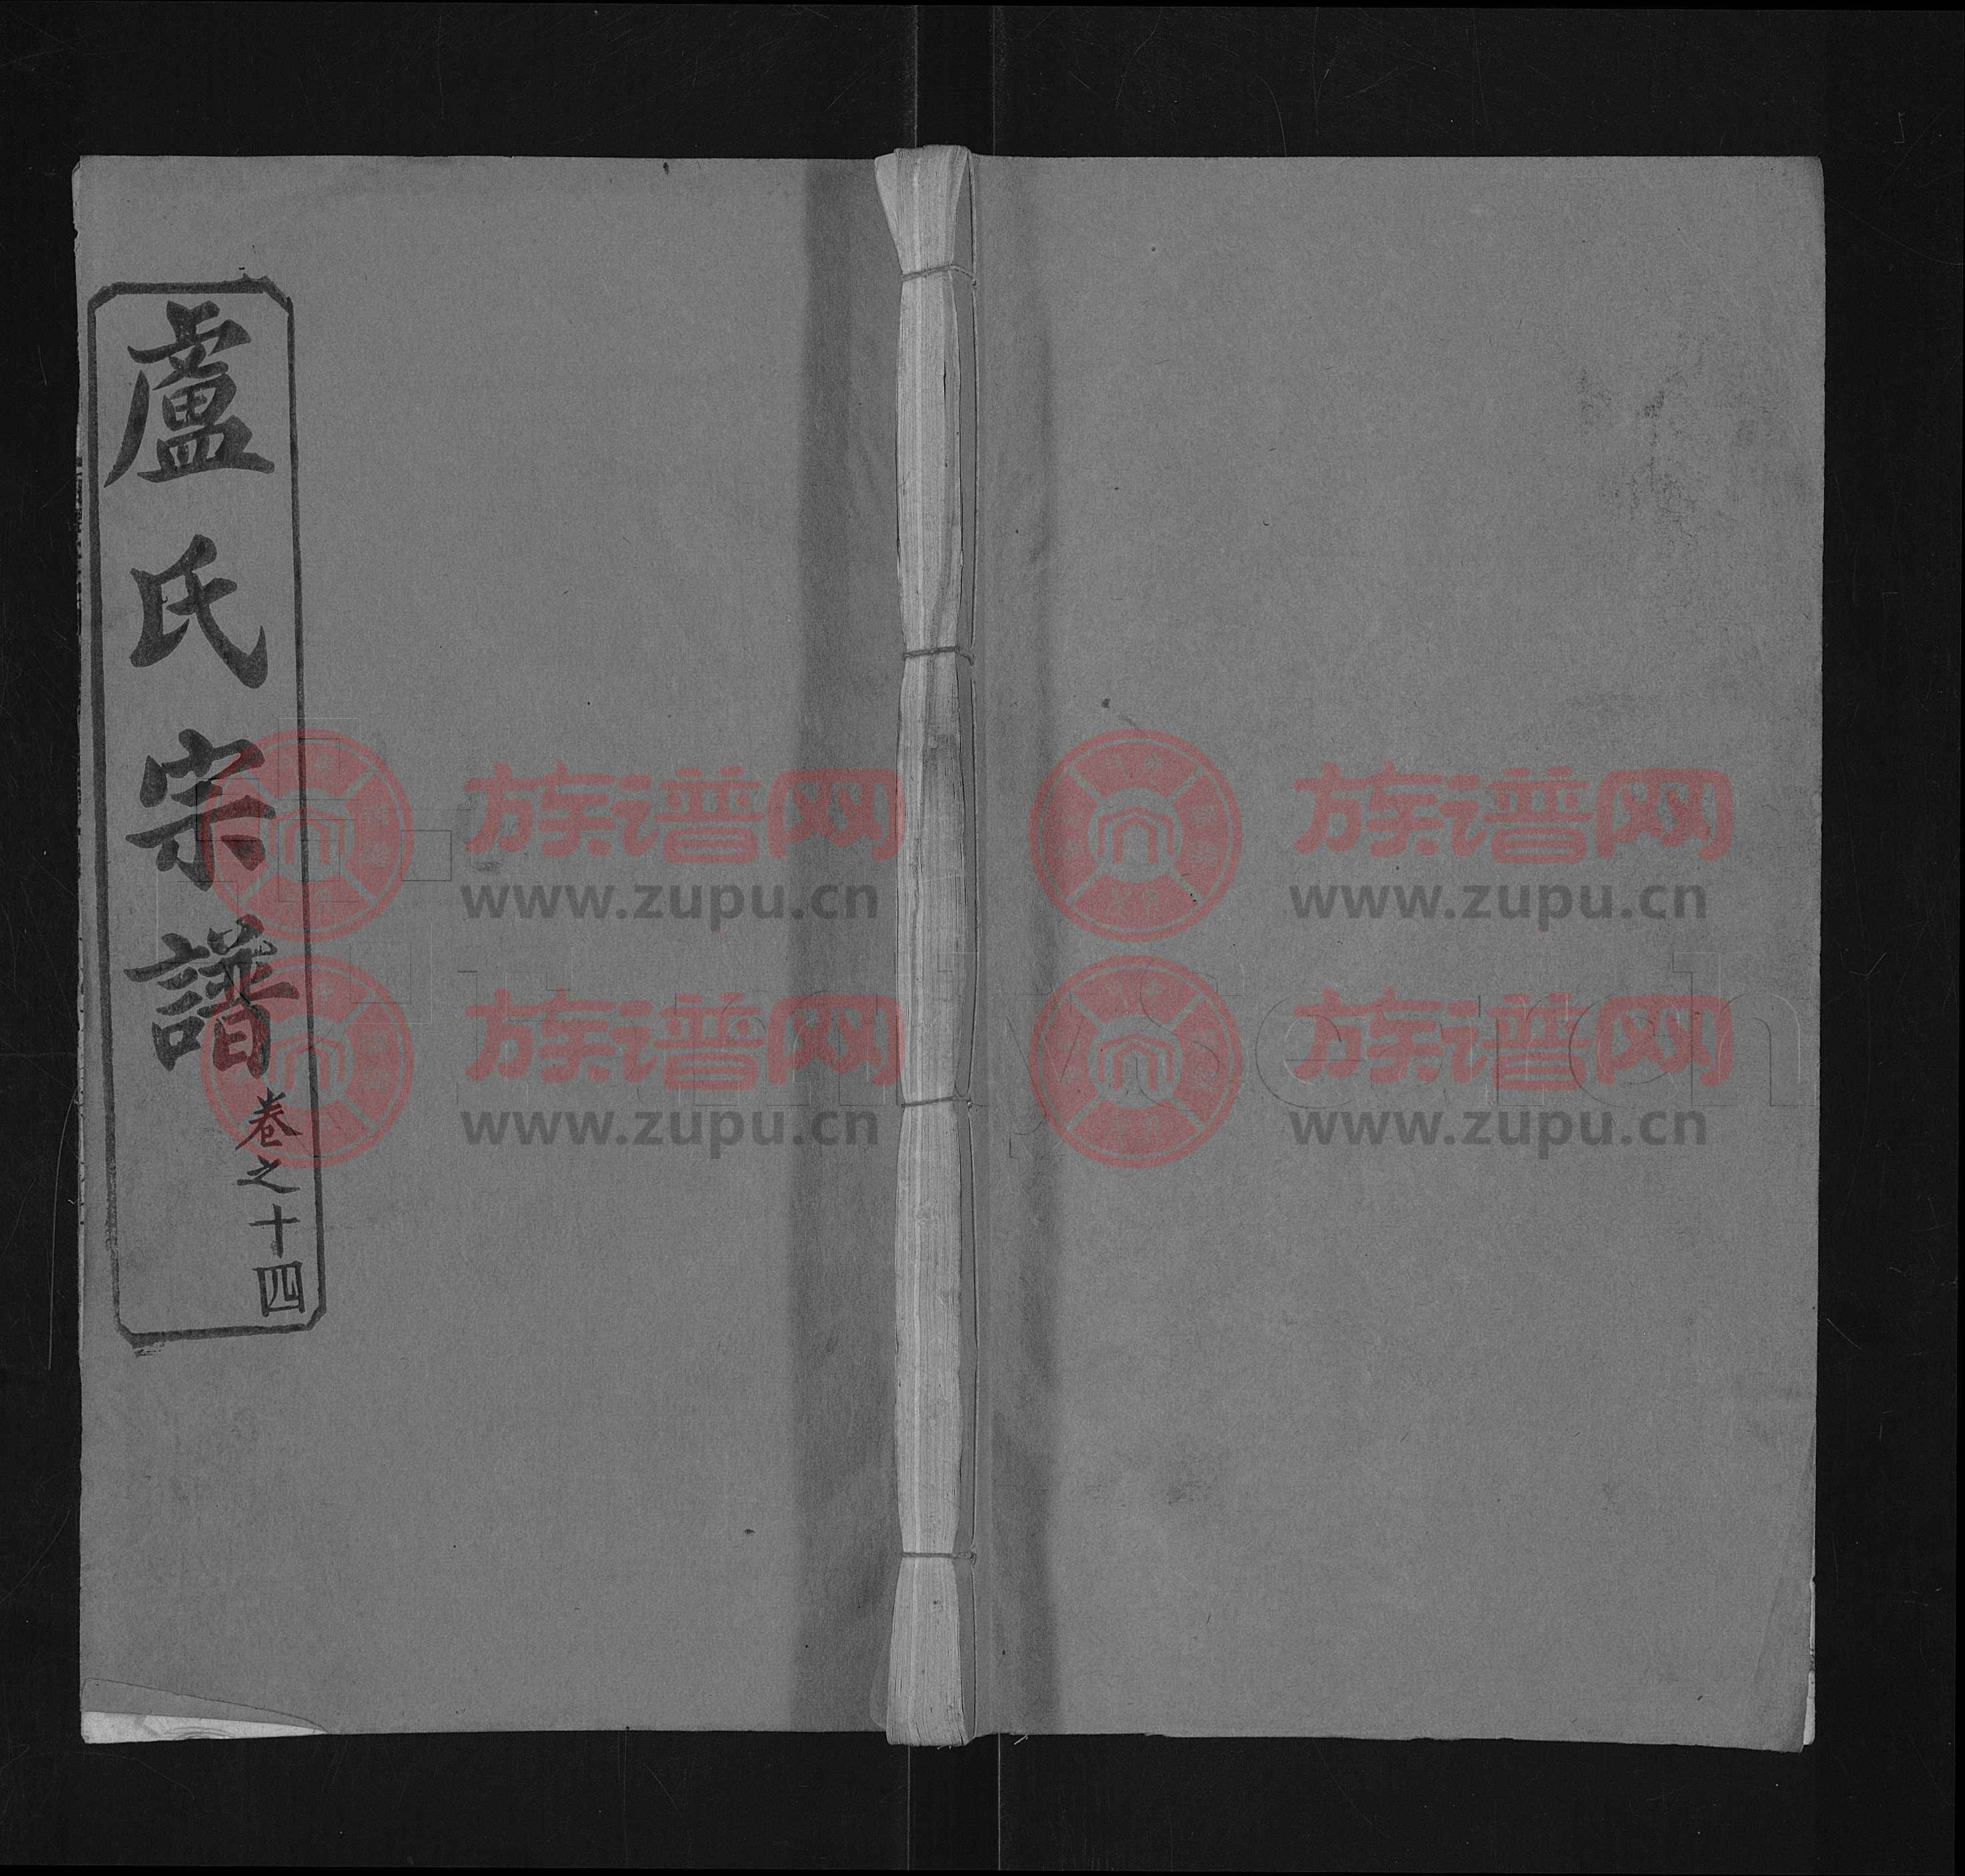 盧氏宗譜
卷之十四
族谱网
www.zupu.cn
族谱网
www.zupu.cn
族谱网
www.zupu.cn
族谱网
www.zupu.cn
FamilySearch